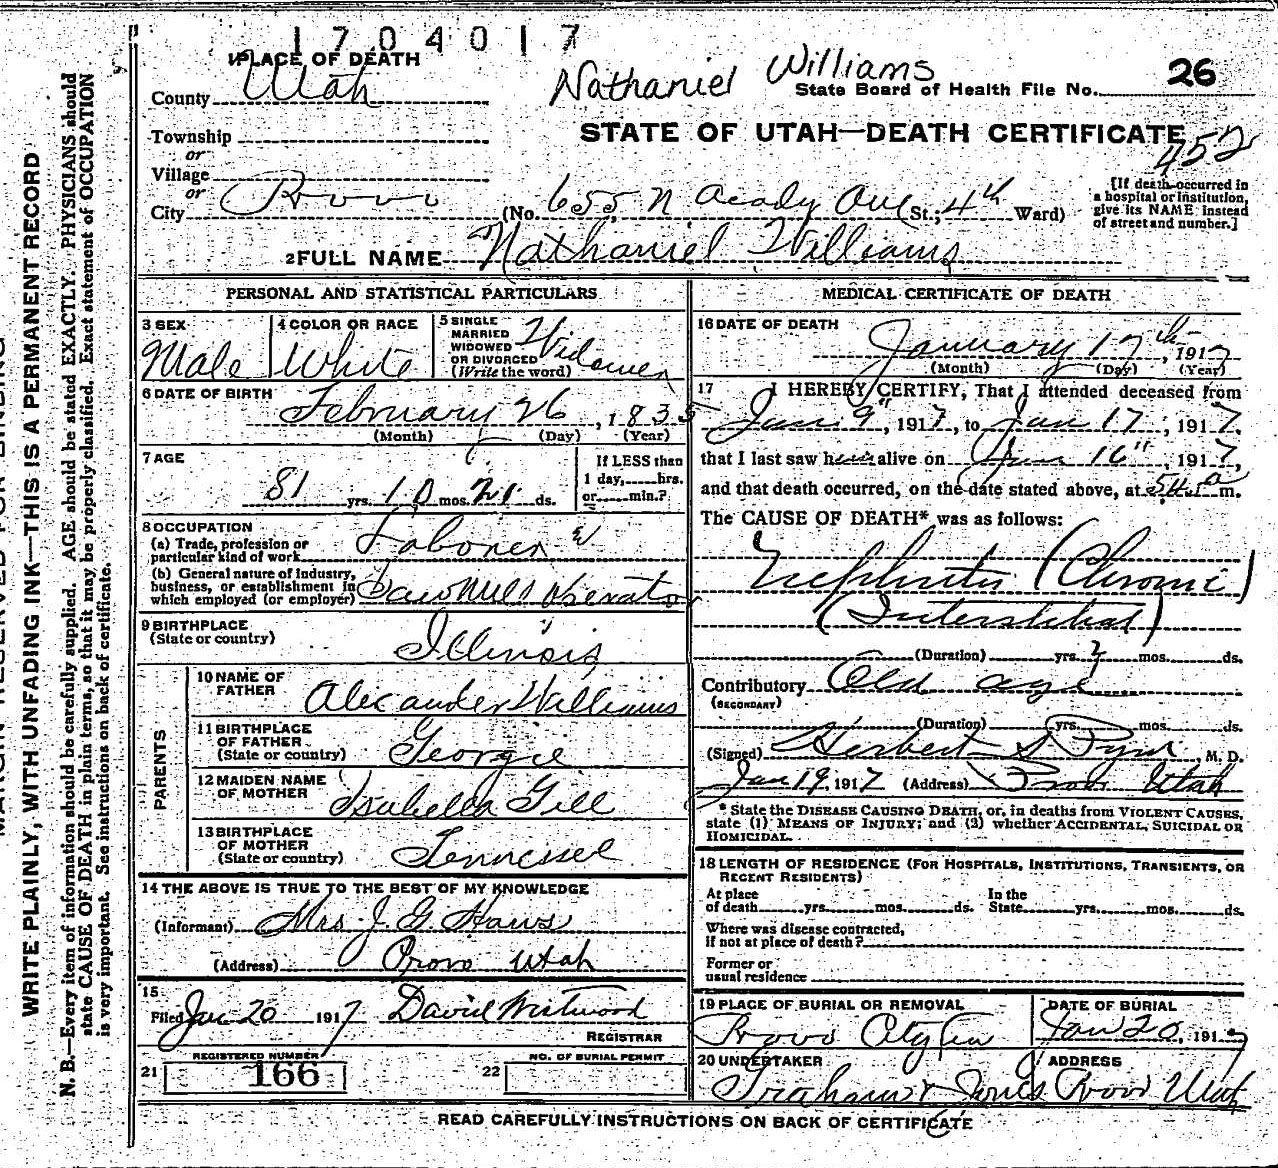 1704017
1 PLACE OF DEATH
Nathaniel Williams
26
County Utah
State Board of Health File No.
Township
STATE OF UTAH—DEATH CERTIFICATE
452
or
Village
or
City Provo
(No. 655 N Acady Ave St.; 4th Ward)
[If death occurred in
a hospital or institution,
give its NAME instead
of street and number.]
2 FULL NAME Nathaniel Williams
PERSONAL AND STATISTICAL PARTICULARS
3 SEX
Male
4 COLOR OR RACE
White
5 SINGLE
MARRIED
WIDOWED
OR DIVORCED
(Write the word)
Widower
6 DATE OF BIRTH
February 26, 1835
(Month) (Day) (Year)
7 AGE
81 yrs. 10 mos. 21 ds.
If LESS than
1 day, hrs.
or min.?
8 OCCUPATION
(a) Trade, profession or
particular kind of work Laborer &
(b) General nature of industry,
business, or establishment in
which employed (or employer) Saw Mill Operator
9 BIRTHPLACE
(State or country)
Illinois
PARENTS
10 NAME OF
FATHER
Alexander Williams
11 BIRTHPLACE
OF FATHER
(State or country)
Georgie
12 MAIDEN NAME
OF MOTHER
Isabella Gill
13 BIRTHPLACE
OF MOTHER
(State or country)
Tennessee
14 THE ABOVE IS TRUE TO THE BEST OF MY KNOWLEDGE
(Informant) Mrs J. G. Haws
(Address) Provo Utah
15
Filed Jan 20 1917 David Westwood
REGISTRAR
REGISTERED NUMBER
21 166
NO. OF BURIAL PERMIT
22
MEDICAL CERTIFICATE OF DEATH
16 DATE OF DEATH
January 17th, 1917
(Month) (Day) (Year)
17 I HEREBY CERTIFY, That I attended deceased from
Jan 9", 1917, to Jan 17, 1917,
that I last saw him alive on Jan 16" 1917,
and that death occurred, on the date stated above, at m.
The CAUSE OF DEATH* was as follows:
Nephritis (Chronic)
(Interstitial)
(Duration) yrs. mos. ds.
Contributory Old age
(SECONDARY)
(Duration) yrs. mos. ds.
(Signed) Herbert S Pyne M. D.
Jan 19, 1917 (Address) Provo Utah
* State the DISEASE CAUSING DEATH, or, in deaths from VIOLENT CAUSES,
state (1) MEANS OF INJURY; and (2) whether ACCIDENTAL, SUICIDAL OR
HOMICIDAL.
18 LENGTH OF RESIDENCE (FOR HOSPITALS, INSTITUTIONS, TRANSIENTS, OR
RECENT RESIDENTS)
At place
of death yrs. mos. ds.
In the
State yrs. mos. ds.
Where was disease contracted,
if not at place of death?
Former or
usual residence
19 PLACE OF BURIAL OR REMOVAL
Provo City Cem
DATE OF BURIAL
Jan 20, 1917
20 UNDERTAKER
ADDRESS
Provo Utah
READ CAREFULLY INSTRUCTIONS ON BACK OF CERTIFICATE
WRITE PLAINLY, WITH UNFADING INK—THIS IS A PERMANENT RECORD
N. B.—Every item of information should be carefully supplied. AGE should be stated EXACTLY. PHYSICIANS should
state CAUSE OF DEATH in plain terms, so that it may be properly classified. Exact statement of OCCUPATION
is very important. See instructions on back of certificate.